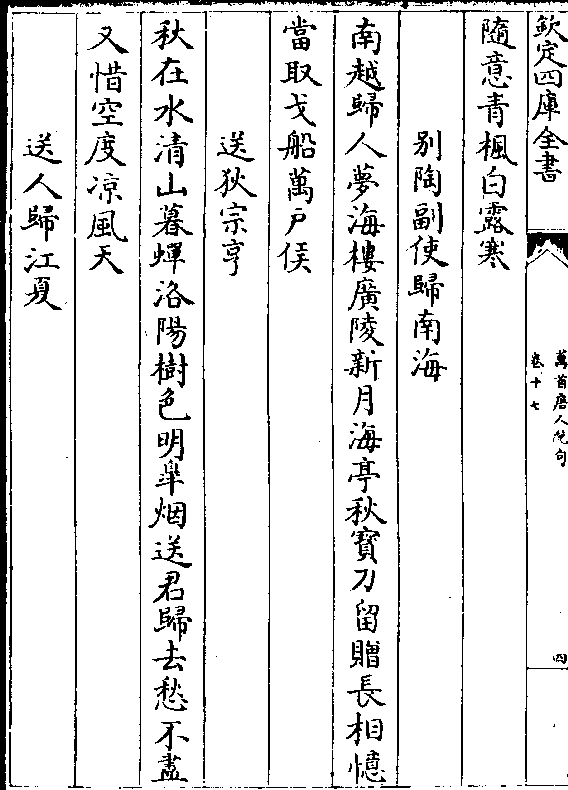 欽定四庫全書
萬首唐人絶句
卷十七
四
隨意青楓白露寒
別陶副使歸南海
南越歸人夢海樓廣陵新月海亭秋寳刀留贈長相憶
當取戈船萬戶侯
送狄宗亨
秋在水清山暮蟬洛陽樹色明臯烟送君歸去愁不盡
又惜空度凉風天
送人歸江夏